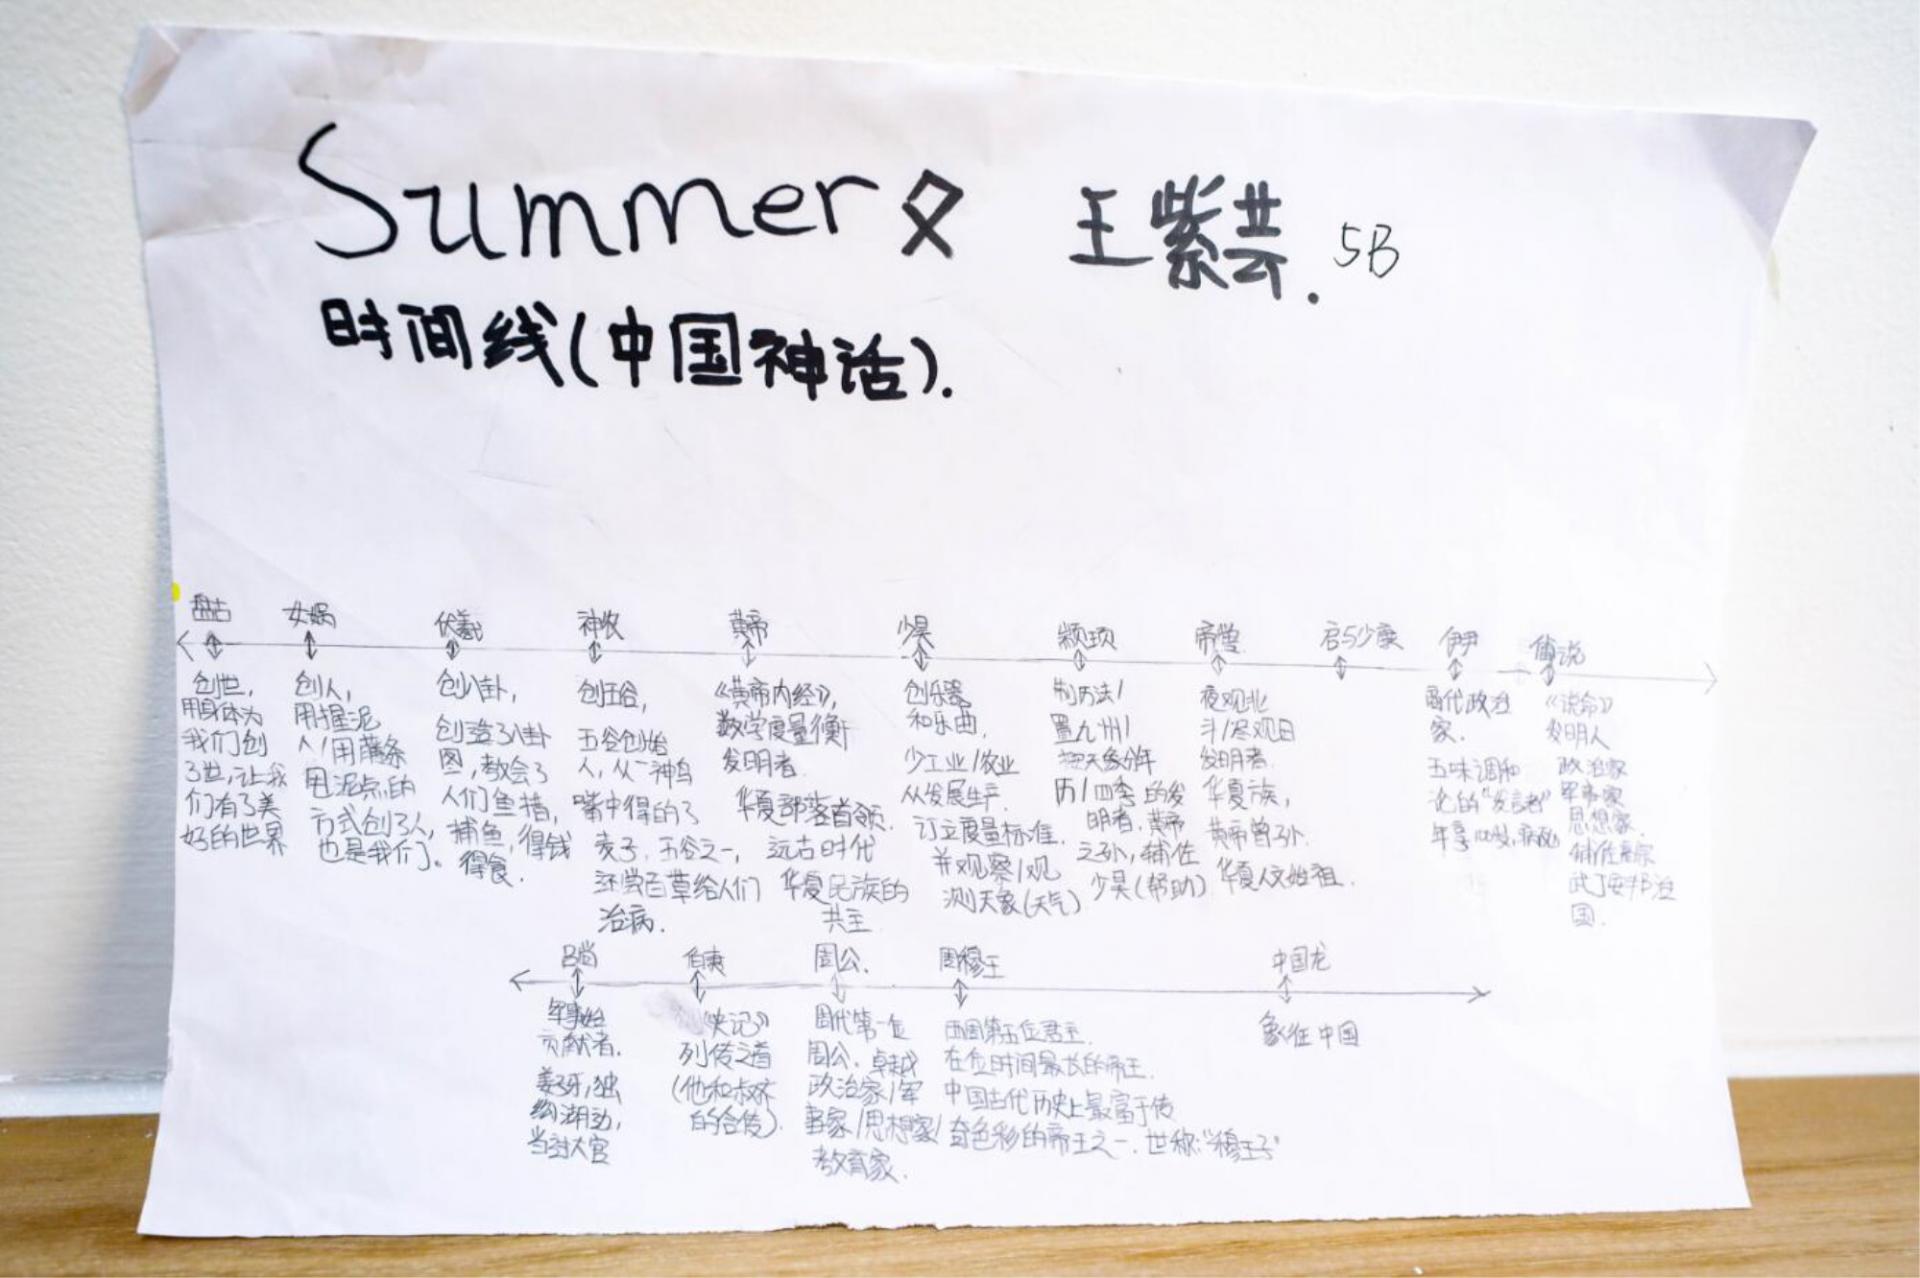 Summer 王紫芸. 5B
时间线(中国神话).
盘古
创世,
用身体为
我们创
了世,让我
们有了美
好的世界
女娲
创人,
用握泥
人/用藤条
甩泥点的
方式创了人,
也是我们。
伏羲
创八卦,
创造了八卦
图,教会了
人们鱼措,
捕鱼,得钱
得食.
神农
创五谷,
五谷创始
人,从一神鸟
嘴中得的了
麦子,五谷之一,
还尝百草给人们
治病.
黄帝
《黄帝内经》,
数学度量衡
发明者.
华夏部落首领.
远古时代
华夏民族的
共主
少昊
创乐器,
和乐曲.
少工业/农业
从发展生产.
订立度量标准.
并观察/观
测天象(天气)
颛顼
制历法/
置九州/
把天象分年
历/四季的发
明者.黄帝
之孙,辅佐
少昊(帮助)
帝喾
夜观北
斗/昼观日
发明者.
华夏族,
黄帝曾孙.
华夏人文始祖.
启与少康
伊尹
商代政治
家.
五味调和
论的“发言者”
年享100岁,病死
傅说
《说命》
发明人
政治家
军事家
思想家.
辅佐
武丁安邦治
国.
吕尚
军事始
贡献者.
姜子牙,独
钓湖边,
当过大官
伯夷
《史记》
列传之首
(他和叔齐
的合传).
周公.
周代第一位
周公.卓越
政治家/军
事家/思想家/
教育家.
周穆王
西周第五位君主.
在位时间最长的帝王.
中国古代历史上最富于传
奇色彩的帝王之一.世称:“穆王子”
中国龙
象征中国